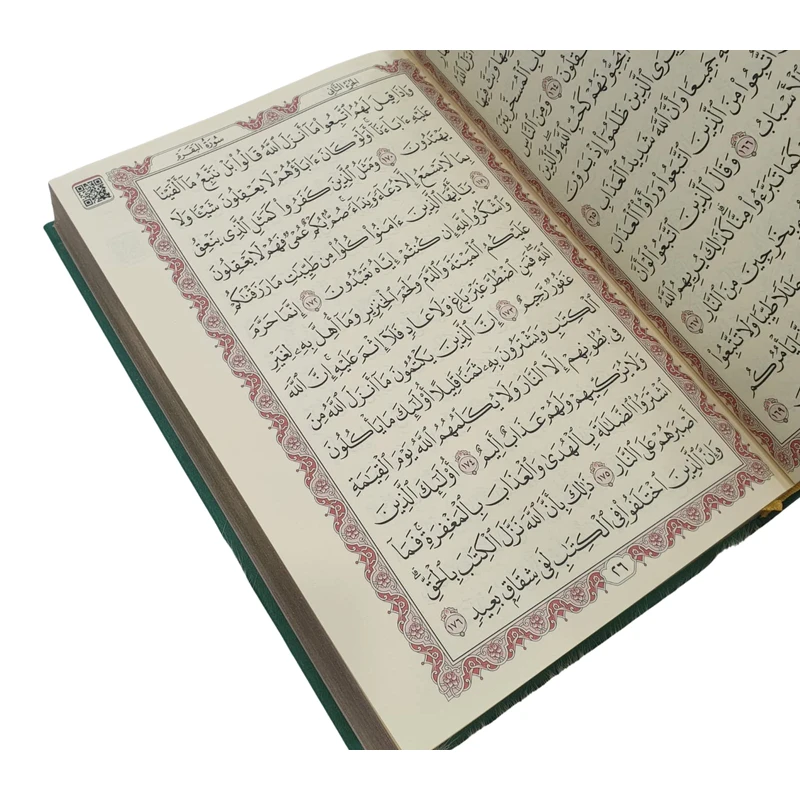 وَبَثَّ فِيهَا
ٱلْمُسَخَّرِ بَيْنَ
يَعْقِلُونَ ١٦٤ وَمِنَ ٱلنَّاسِ
يُحِبُّونَهُمْ كَحُبِّ ٱللَّهِ وَٱلَّذِينَ
يَرَى ٱلَّذِينَ ظَلَمُوٓا۟ إِذْ يَرَوْنَ
جَمِيعًا وَأَنَّ ٱللَّهَ شَدِيدُ ٱلْعَذَابِ ١٦٥
ٱتُّبِعُوا۟ مِنَ ٱلَّذِينَ ٱتَّبَعُوا۟ وَرَأَوُا۟ ٱلْعَذَابَ
ٱلْأَسْبَابُ ١٦٦ وَقَالَ ٱلَّذِينَ ٱتَّبَعُوا۟ لَوْ أَنَّ
كَمَا تَبَرَّءُوا۟ مِنَّا كَذَٰلِكَ يُرِيهِمُ ٱللَّهُ
بِخَٰرِجِينَ مِنَ ٱلنَّارِ ١٦٧
حَلَٰلًا طَيِّبًا وَلَا تَتَّبِعُوا۟
يَأْمُرُكُم
١٦٩
الجزء الثاني
سورة البقرة
وَإِذَا قِيلَ لَهُمُ ٱتَّبِعُوا۟ مَآ أَنزَلَ ٱللَّهُ قَالُوا۟ بَلْ نَتَّبِعُ مَآ أَلْفَيْنَا
عَلَيْهِ ءَابَآءَنَآ أَوَلَوْ كَانَ ءَابَآؤُهُمْ لَا يَعْقِلُونَ شَيْـًٔا وَلَا
يَهْتَدُونَ ١٧٠ وَمَثَلُ ٱلَّذِينَ كَفَرُوا۟ كَمَثَلِ ٱلَّذِى يَنْعِقُ
بِمَا لَا يَسْمَعُ إِلَّا دُعَآءً وَنِدَآءً صُمٌّۢ بُكْمٌ عُمْىٌ فَهُمْ لَا يَعْقِلُونَ
١٧١ يَٰٓأَيُّهَا ٱلَّذِينَ ءَامَنُوا۟ كُلُوا۟ مِن طَيِّبَٰتِ مَا رَزَقْنَٰكُمْ
وَٱشْكُرُوا۟ لِلَّهِ إِن كُنتُمْ إِيَّاهُ تَعْبُدُونَ ١٧٢ إِنَّمَا حَرَّمَ
عَلَيْكُمُ ٱلْمَيْتَةَ وَٱلدَّمَ وَلَحْمَ ٱلْخِنزِيرِ وَمَآ أُهِلَّ بِهِۦ لِغَيْرِ
ٱللَّهِ فَمَنِ ٱضْطُرَّ غَيْرَ بَاغٍ وَلَا عَادٍ فَلَآ إِثْمَ عَلَيْهِ إِنَّ ٱللَّهَ
غَفُورٌ رَّحِيمٌ ١٧٣ إِنَّ ٱلَّذِينَ يَكْتُمُونَ مَآ أَنزَلَ ٱللَّهُ مِنَ
ٱلْكِتَٰبِ وَيَشْتَرُونَ بِهِۦ ثَمَنًا قَلِيلًا أُو۟لَٰٓئِكَ مَا يَأْكُلُونَ
فِى بُطُونِهِمْ إِلَّا ٱلنَّارَ وَلَا يُكَلِّمُهُمُ ٱللَّهُ يَوْمَ ٱلْقِيَٰمَةِ
وَلَا يُزَكِّيهِمْ وَلَهُمْ عَذَابٌ أَلِيمٌ ١٧٤ أُو۟لَٰٓئِكَ ٱلَّذِينَ
ٱشْتَرَوُا۟ ٱلضَّلَٰلَةَ بِٱلْهُدَىٰ وَٱلْعَذَابَ بِٱلْمَغْفِرَةِ فَمَآ
أَصْبَرَهُمْ عَلَى ٱلنَّارِ ١٧٥ ذَٰلِكَ بِأَنَّ ٱللَّهَ نَزَّلَ ٱلْكِتَٰبَ بِٱلْحَقِّ
وَإِنَّ ٱلَّذِينَ ٱخْتَلَفُوا۟ فِى ٱلْكِتَٰبِ لَفِى شِقَاقٍۭ بَعِيدٍ ١٧٦
٢٦